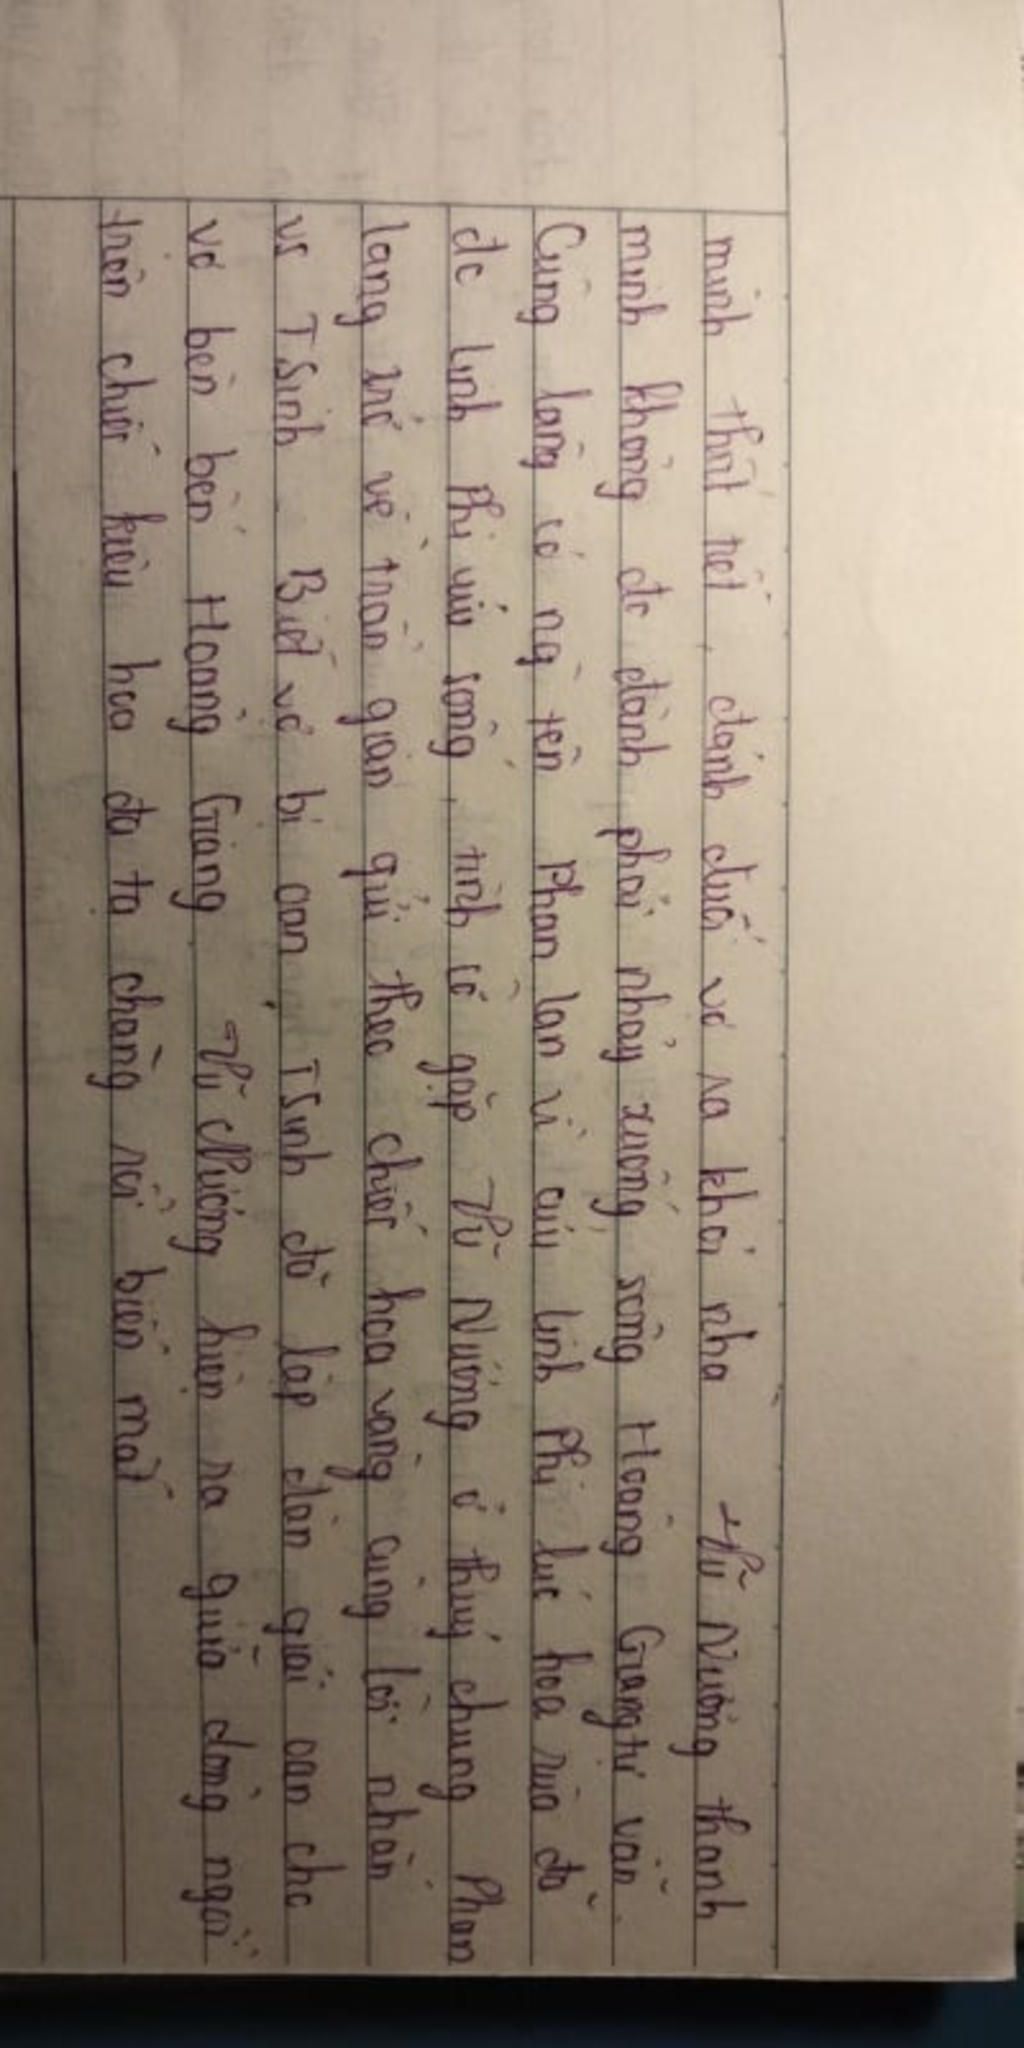 minh thất tiết, đánh đuổi vợ ra khỏi nhà Vũ Nương thanh
minh không đc đành phải nhảy xuống sông Hoàng Giang tự vẫn.
Cùng làng có ng tên Phan Lan vì cứu Linh Phi lúc hoá rùa đã
đc Linh Phi cứu sống, tình cờ gặp Vũ Nương ở thuỷ chung Phan
lang trở về trần gian gửi theo chiếc hoa vàng cùng lời nhắn
vs TSinh. Biết vợ bị oan, TSinh đã lập đàn giải oan cho
vợ bên bến Hoàng Giang. Vũ Nương hiện ra giữa dòng ngồi
trên chiếc kiệu hoa đa tạ chàng rồi biến mất